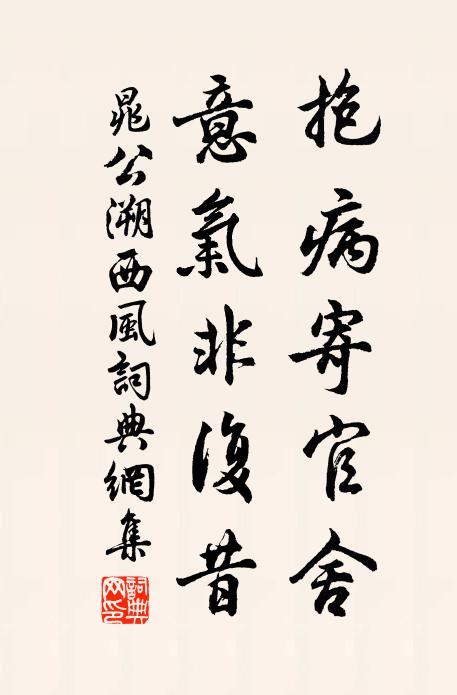 抱病寄官舍
意氣非復昔
晁公溯西風詞典網集
詞典網印